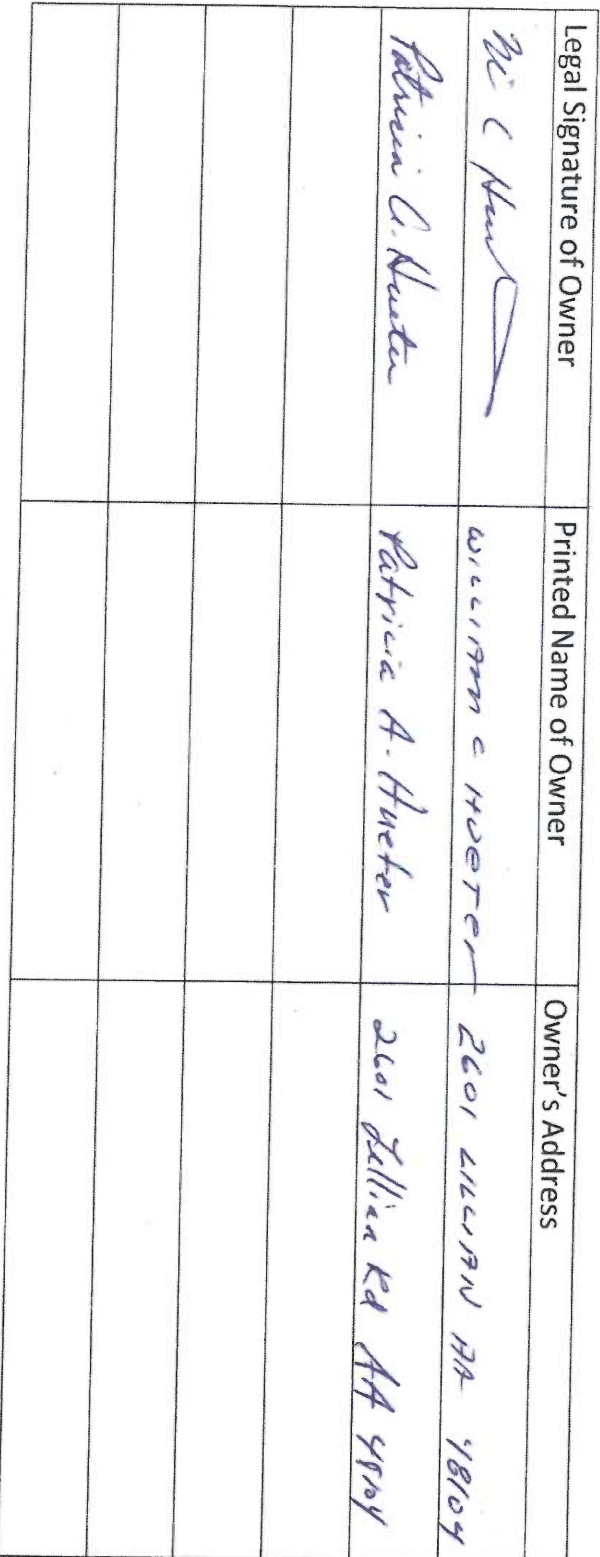 Legal Signature of Owner Printed Name of Owner Owner's Address
W C Hueter WILLIAM C HUETER 2601 LILLIAN AA 48104
Patricia A. Hueter Patricia A. Hueter 2601 Lillian Rd AA 48104